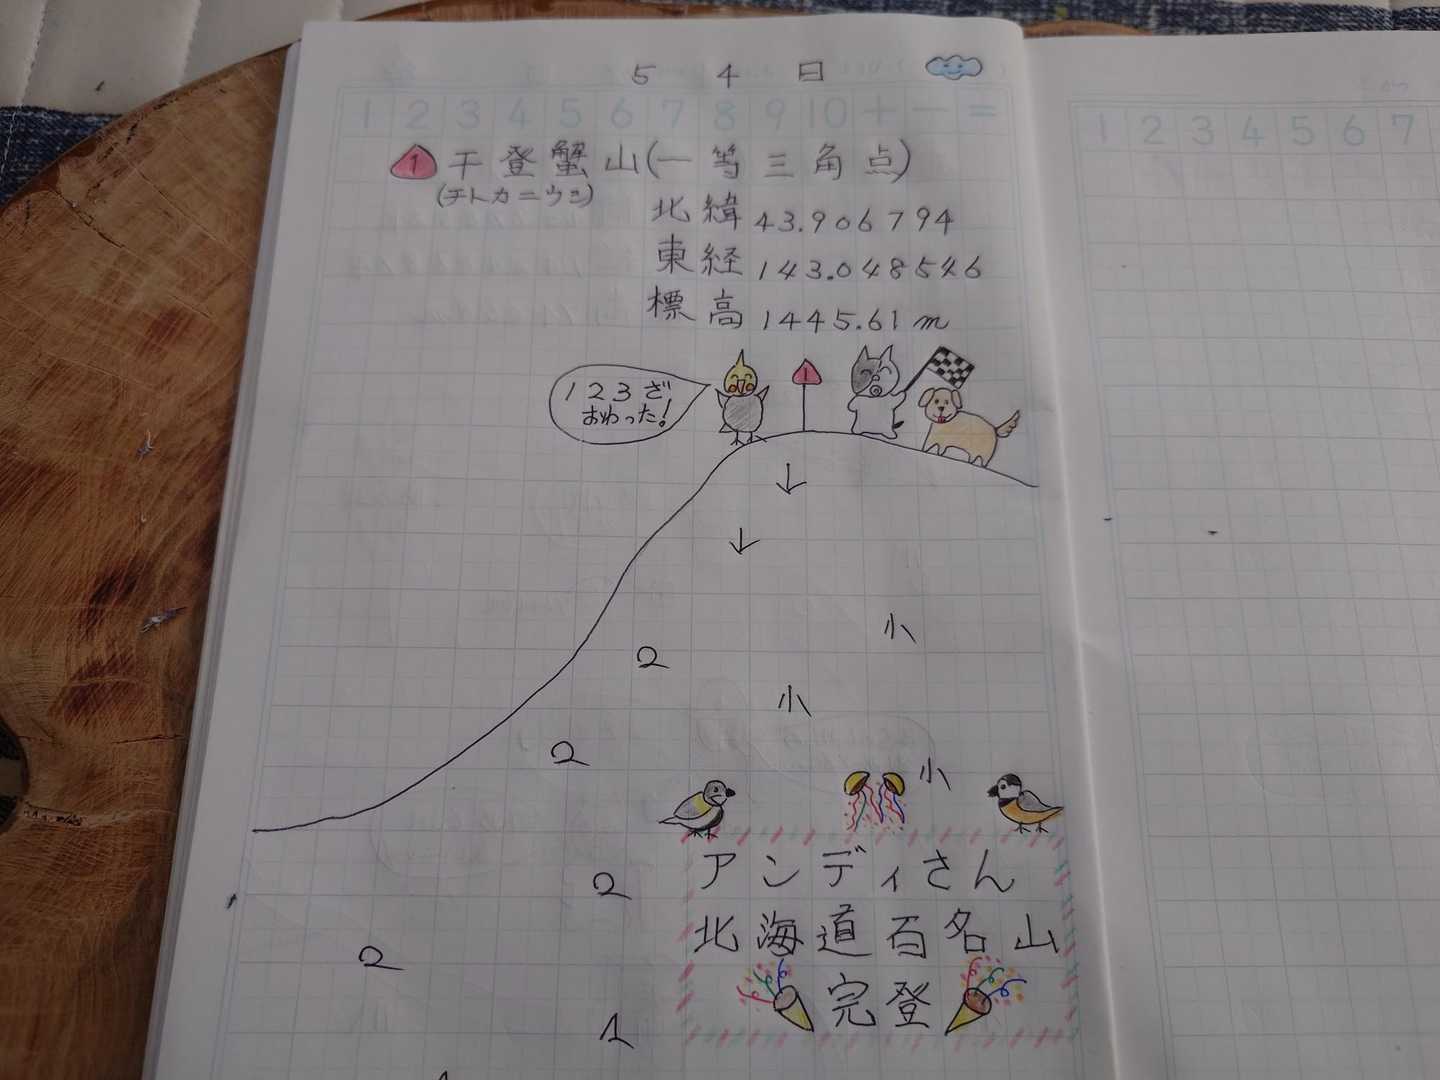 5 4 日
1 2 3 4 5 6 7 8 9 10 + - =
1 干登蟹山(一等三角点)
(チトカニウシ)
北緯 43.906794
東経 143.048546
標高 1445.61m
123ざ
おわった!
1
アンディさん
北海道百名山
完登
1 2 3 4 5 6 7